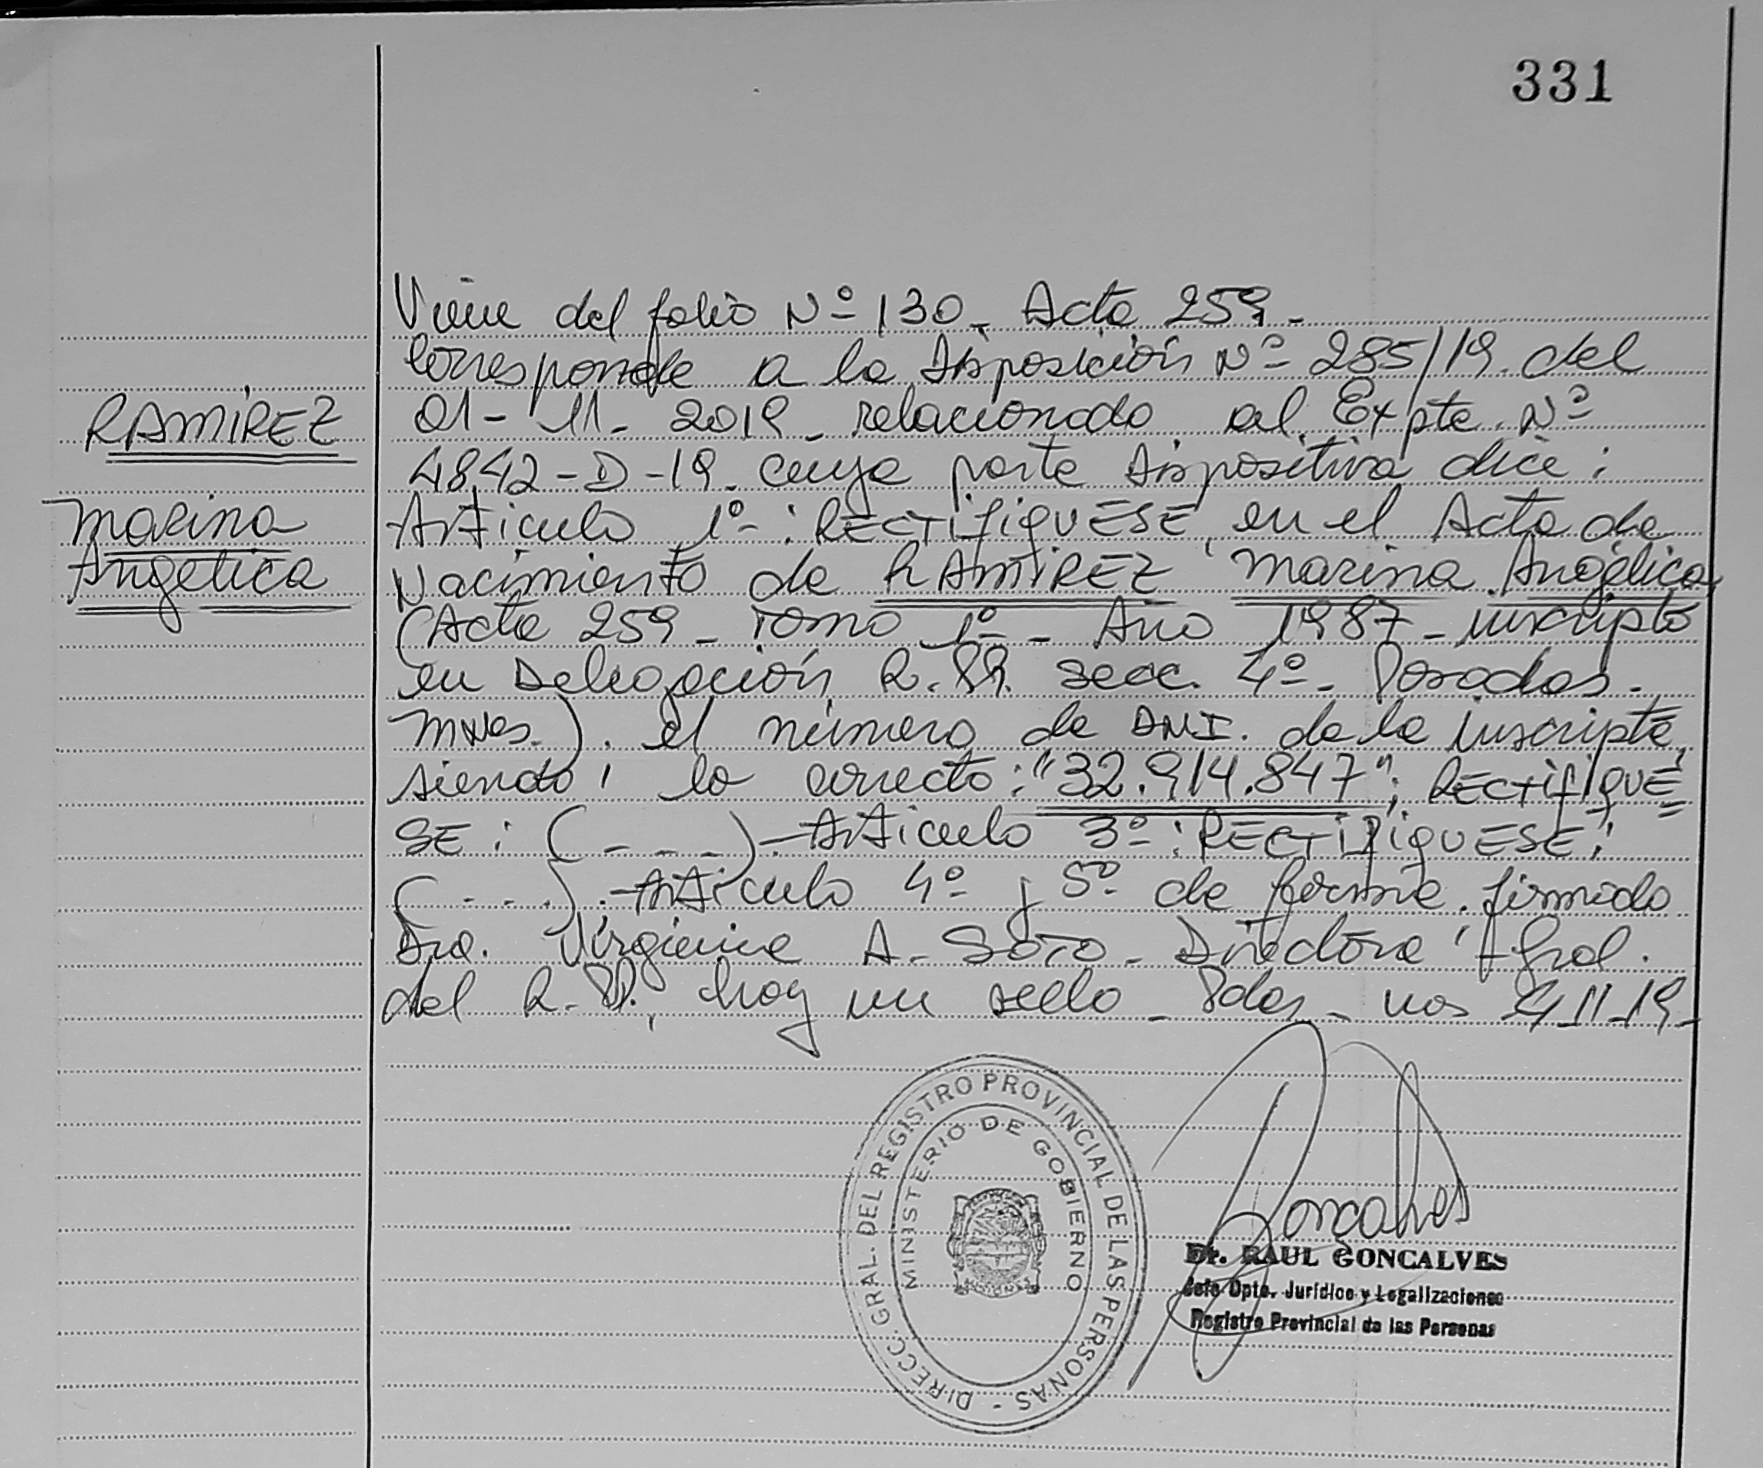 331
Viene del folio Nº 130. Acta 259.
Corresponde a la Disposición Nº 285/19. del
RAMIREZ
01-11-2019. relacionado al Expte. Nº
4842-D-19. cuya parte Dispositiva dice:
Marina
Artículo 1º-: RECTIFIQUESE en el Acta de
Angélica
Nacimiento de RAMIREZ Marina Angélica,
(Acta 259 - Tomo 1º - Año 1987 - inscripto
en Delegación R.P.P. secc. 4º - Posadas -
Mnes.). el número de DNI. de la inscripta,
siendo lo correcto: "32.914.847"; RECTIFIQUE=
SE: (- - -) - Artículo 3º: RECTIFIQUESE:
(- - -). Artículo 4º y 5º de forma. firmado
Dra. A. SOTO - Directora Gral.
del R.P.P., hay un sello - Pdas -
DIRECC. GRAL. DEL REGISTRO PROVINCIAL DE LAS PERSONAS -
MINISTERIO DE GOBIERNO
Goncalves
Dr. RAUL GONCALVES
Jefe Dpto. Jurídico y Legalizaciones
Registro Provincial de las Personas